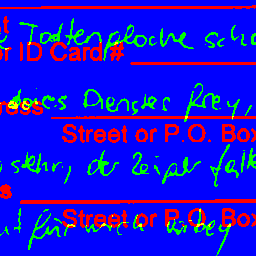 Todtenglocke scha
or ID Card #
deines Dienstes frey,
ress
Street or P.O. Box
stehn, der Zeiger falle
s
Street or P.O. Box
für mich vorbey